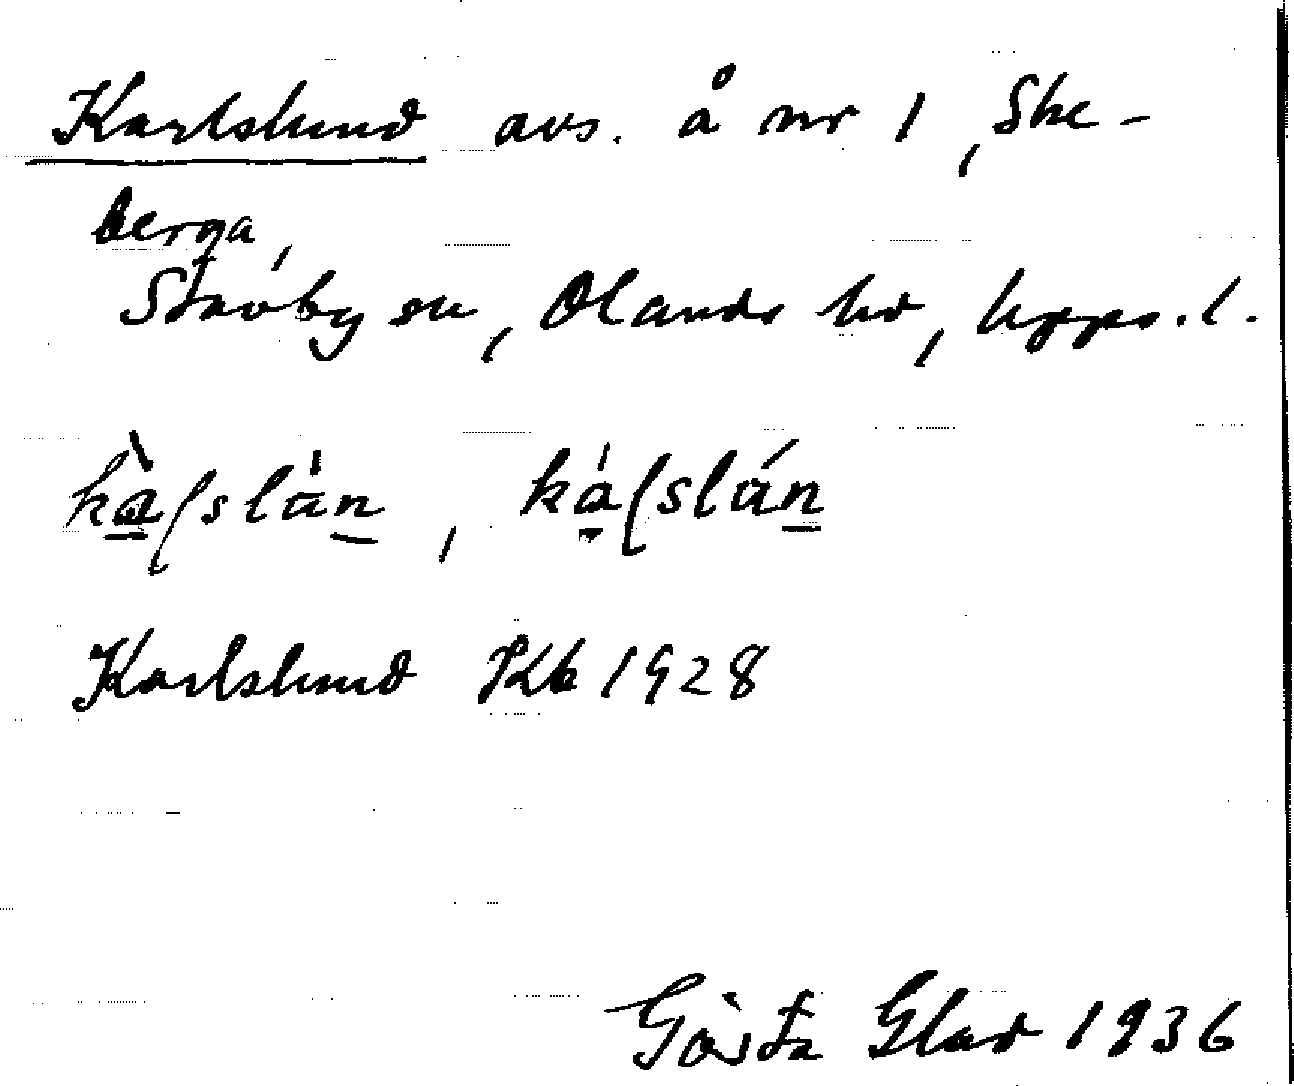 Karlslund avs. å nr 1, Ske-
berga,
Stavby sn, Olands hd, Upps. l.
kàʃslùn, káʃslún
Karlslund PKb 1928
Gösta Glad 1936